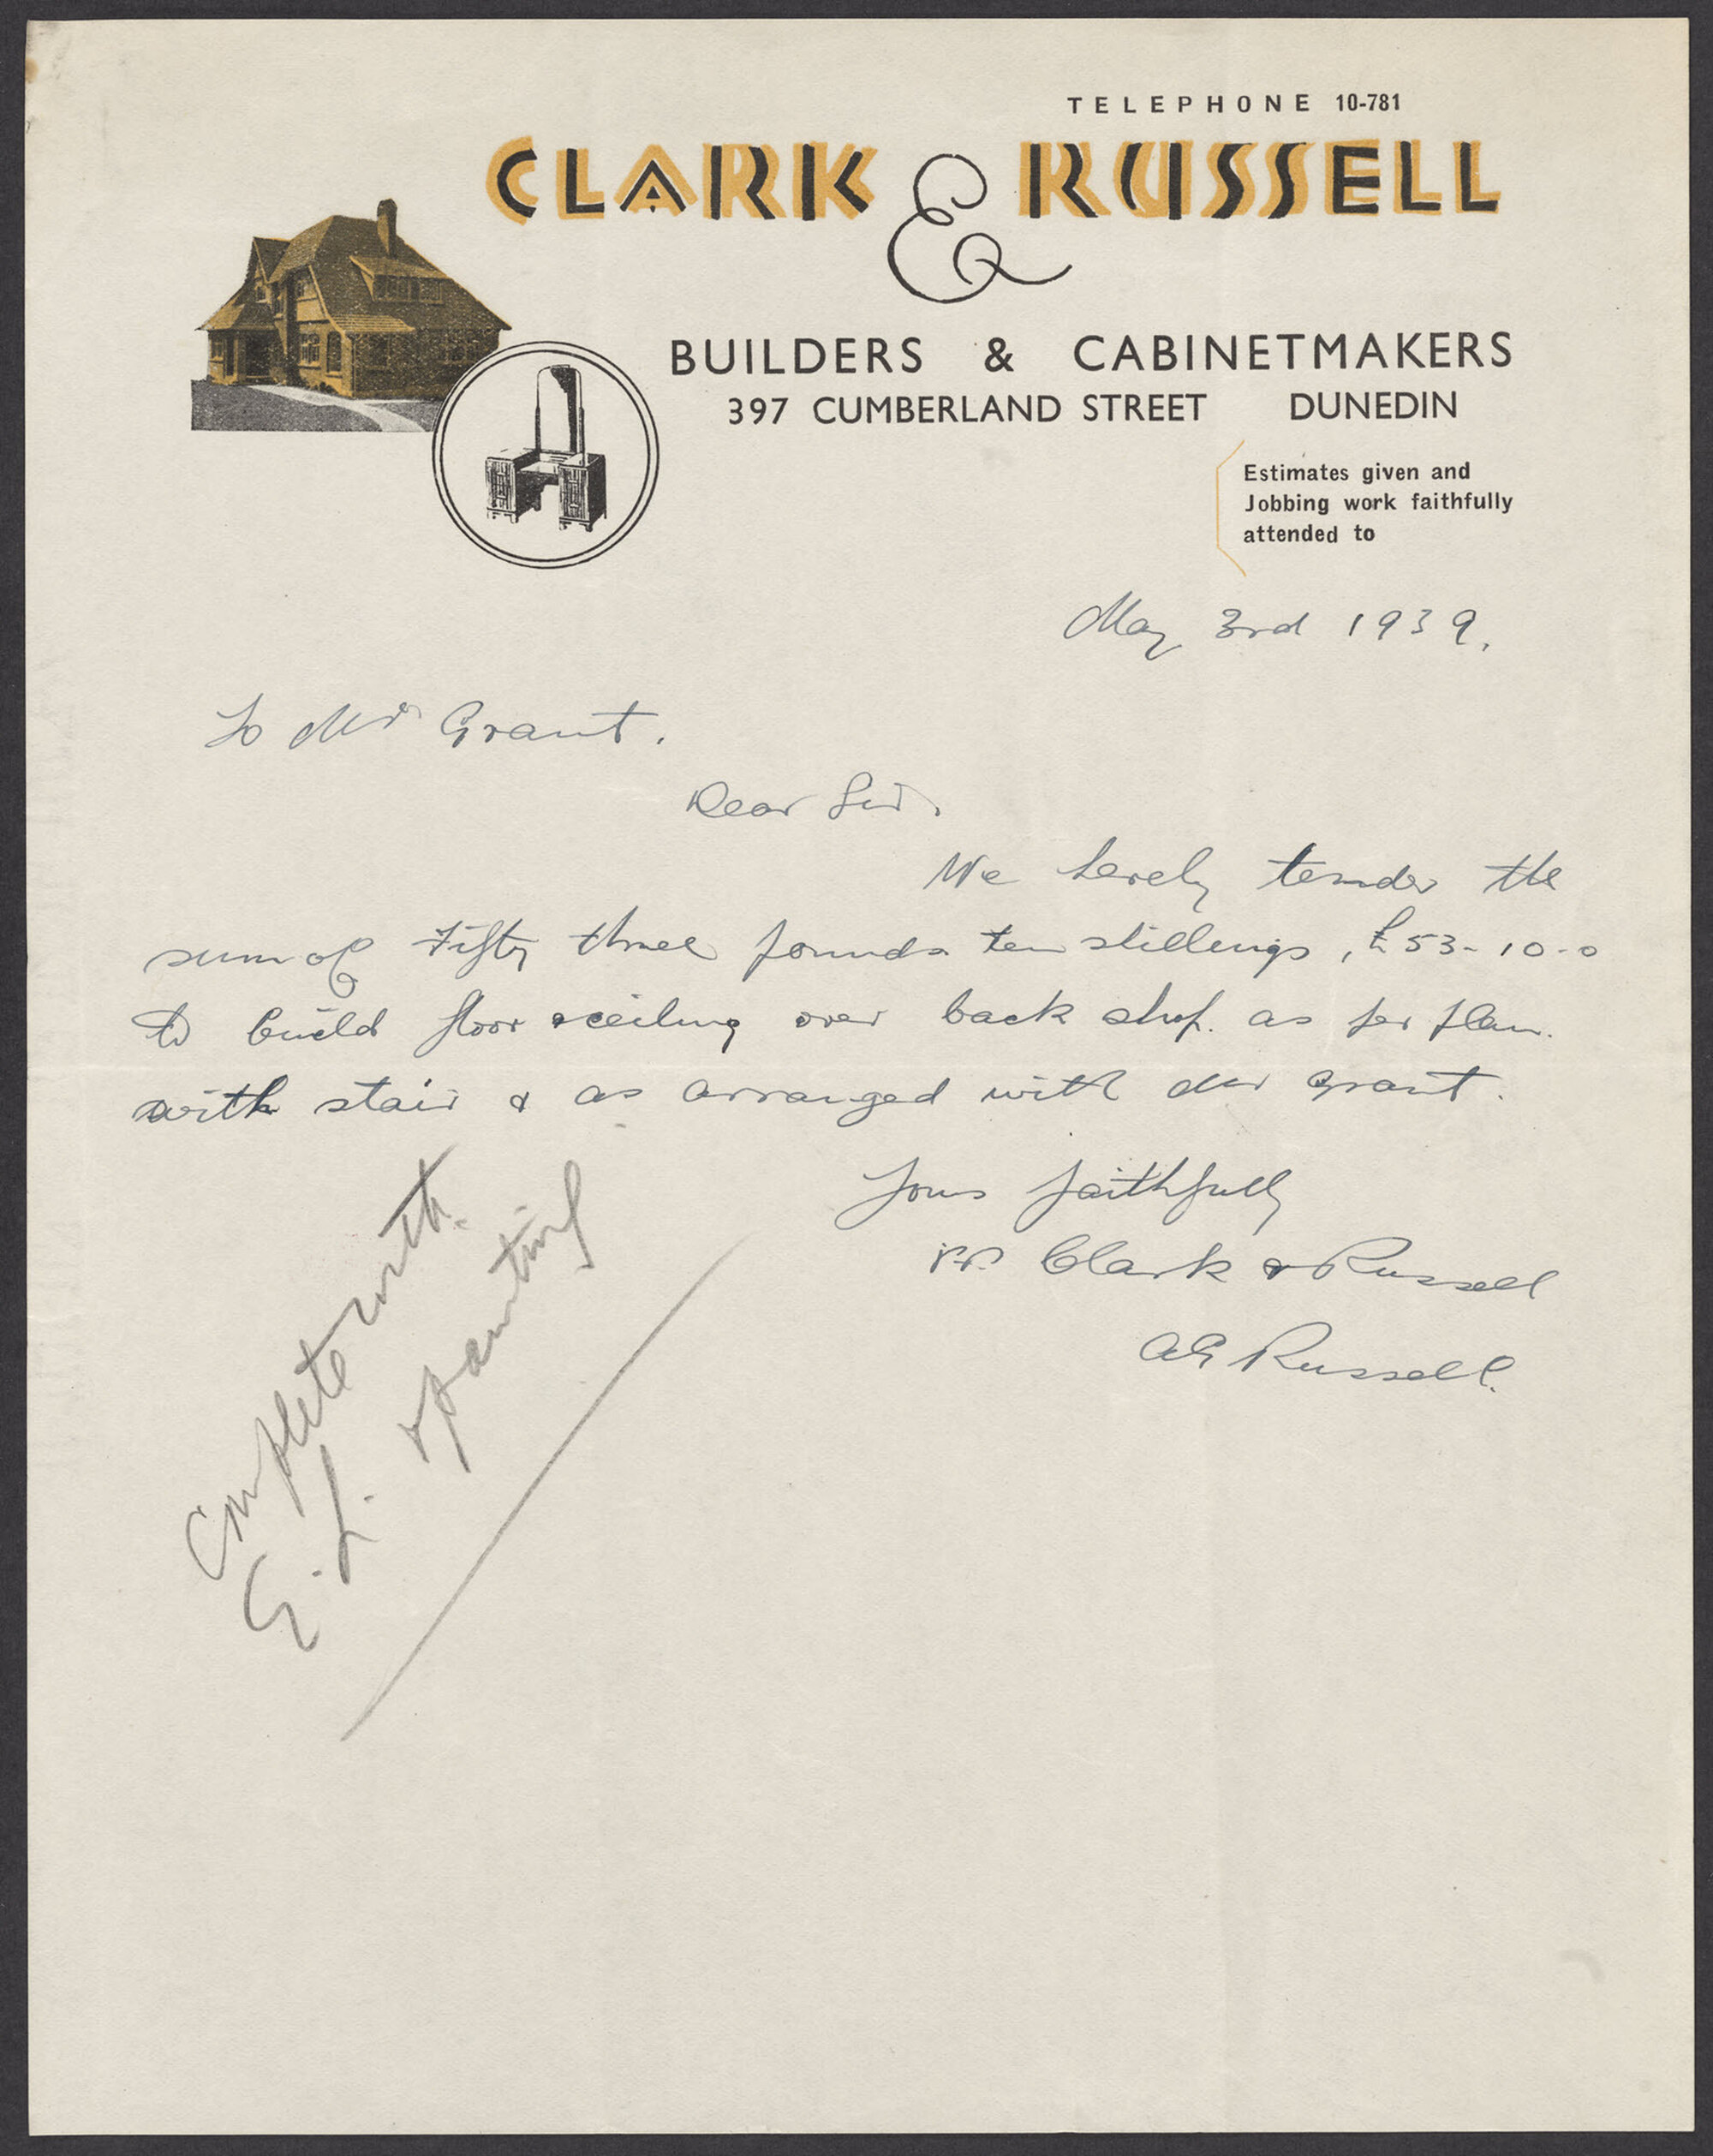 TELEPHONE 10-781
CLARK & RUSSELL
BUILDERS & CABINETMAKERS
397 CUMBERLAND STREET DUNEDIN
Estimates given and
Jobbing work faithfully
attended to
May 3rd 1939.
To Mr Grant.
Dear Sir.
We hereby tender the
sum of Fifty three pounds ten shillings, £53-10-0
to build floor & ceiling over back shop. as per plan.
with stair & as arranged with Mr Grant.
Yours faithfully
p.p. Clark & Russell
AG Russell.
Complete with
E.L. & painting